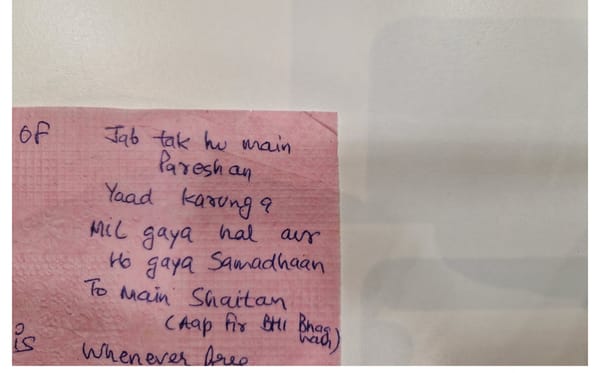 of Jab tak hu main
Pareshan
Yaad karunga
Mil gaya hal aur
Ho gaya Samadhaan
To main Shaitan
(Aap fir BHI Bhag
wan)
is Whenever free